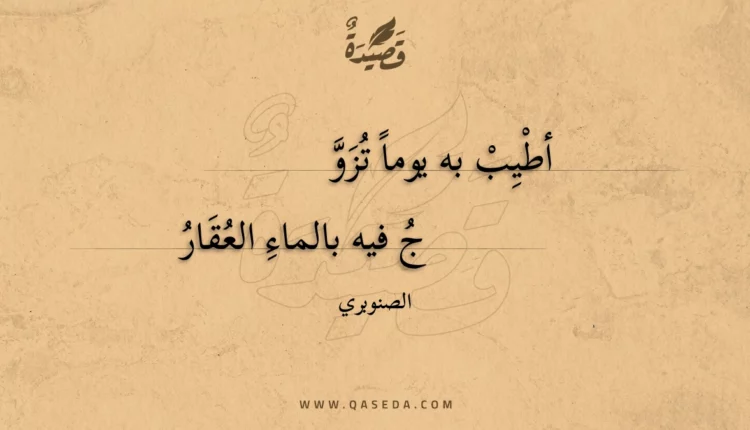 قَصِيْدَةٌ
أطْيِبْ به يوماً تُزَوَّ
جُ فيه بالماءِ العُقَارُ
الصنوبري
WWW.QASEDA.COM